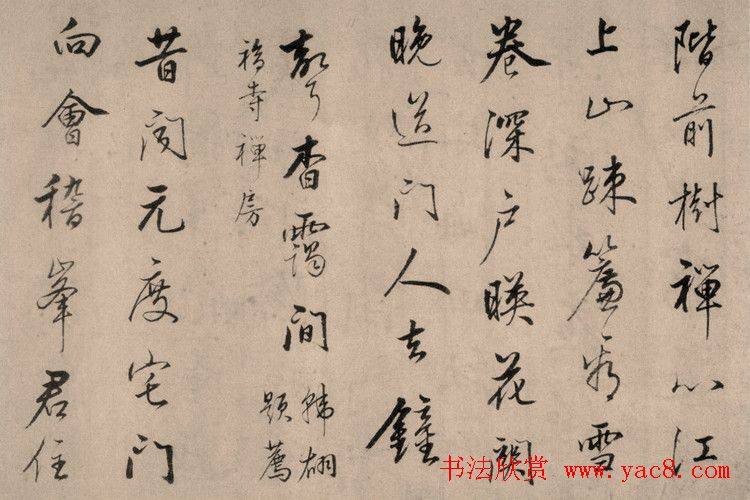 階前樹禪心江
上山疎簾看雪
卷深戶暎花關
晚道門人去鐘
聲杳靄間 韓翃
題薦
福寺禪房
昔聞元度宅門
向會稽峯君住
书法欣赏 www.yac8.com